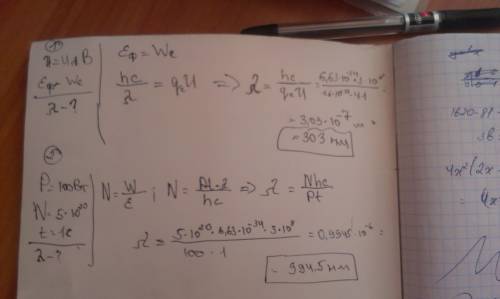 1)
U=4,1 В
Eф= We
λ-?
Eф = We
hc/λ = qeU => λ = hc/qeU = 6,63·10^-34·3·10^8/1,6·10^-19·4,1 =
= 3,03·10^-7 м =
= 303 нм
2)
P=100Вт
N=5·10^20
t=1с
λ-?
N = W/E ; N = Pt·λ/hc => λ = Nhc/Pt
λ = 5·10^20·6,63·10^-34·3·10^8/100·1 = 0,9945·10^-6 =
= 994.5 нм
4x²(2x-
= 4x